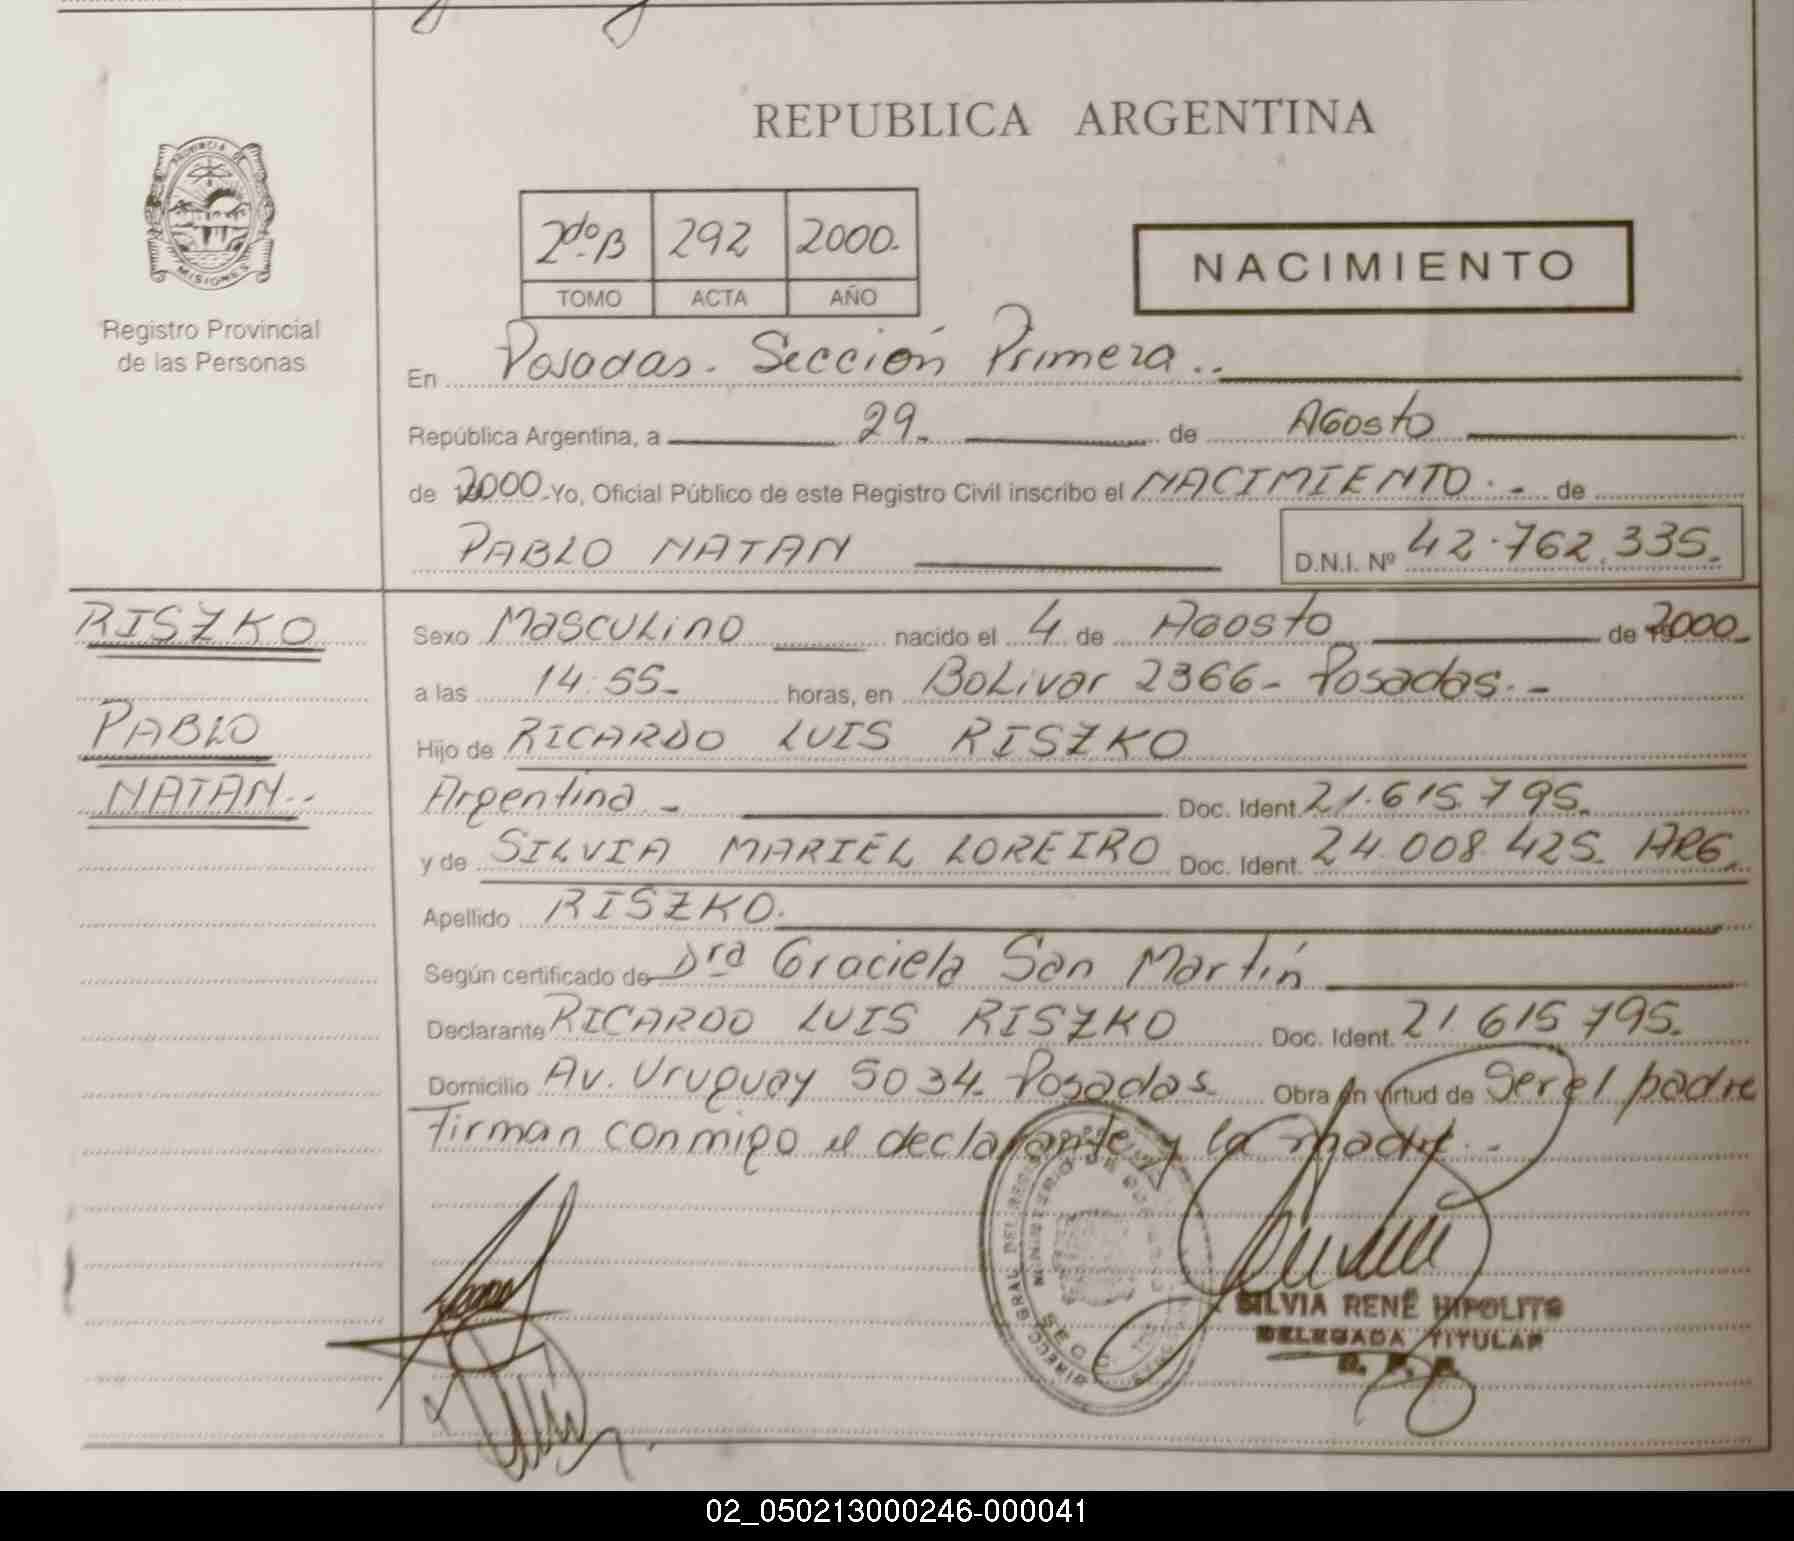 REPUBLICA ARGENTINA
PROVINCIA DE
MISIONES
Registro Provincial
de las Personas
2do B 292 2000.
TOMO ACTA AÑO
NACIMIENTO
En Posadas. Sección Primera..
República Argentina, a 29. de Agosto
de 2000 Yo, Oficial Público de este Registro Civil inscribo el NACIMIENTO. - de
PABLO NATAN D.N.I. Nº 42.762.335.
RISZKO
PABLO
NATAN..
Sexo Masculino nacido el 4 de Agosto de 2000.
a las 14:55- horas, en Bolivar 2366- Posadas. -
Hijo de RICARDO LUIS RISZKO
Argentina - Doc. Ident. 21.615.795.
y de SILVIA MARIEL LOREIRO Doc. Ident. 24.008.425. ARG.
Apellido RISZKO.
Según certificado de Dra Graciela San Martín
Declarante RICARDO LUIS RISZKO Doc. Ident. 21.615.795.
Domicilio Av. Uruguay 5034- Posadas Obra en virtud de ser el padre
Firman conmigo el declarante y la madre. -
SILVIA RENÉ HIPOLITO
DELEGADA TITULAR
02_050213000246-000041